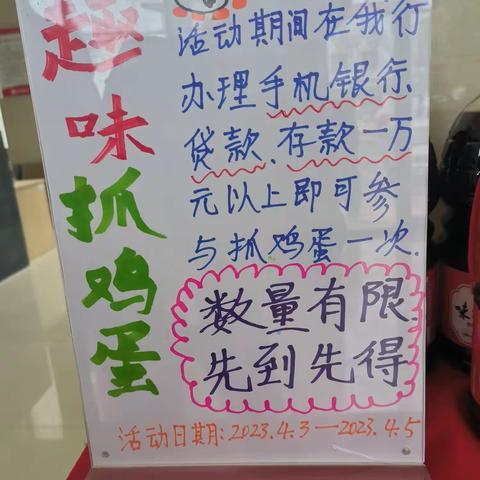 趣味抓鸡蛋
活动期间在我行
办理手机银行、
贷款、存款一万
元以上即可参
与抓鸡蛋一次.
数量有限
先到先得
活动日期:2023.4.3—2023.4.5
味